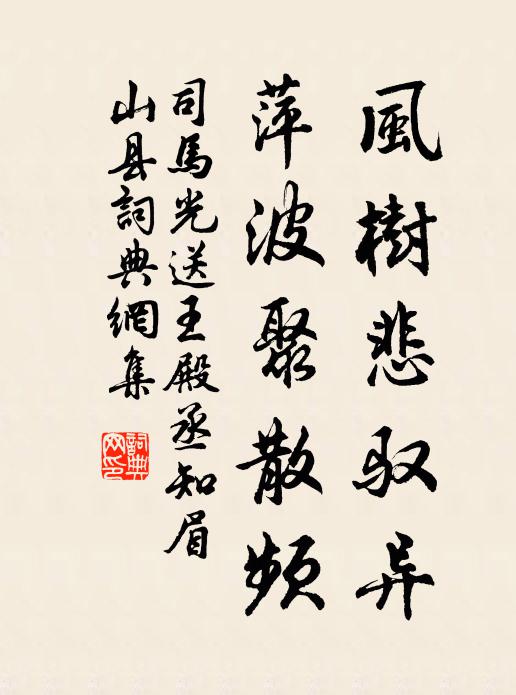 風樹悲驭异
萍波聚散频
司馬光送王殿丞知眉
山县詞典網集
詞典网印